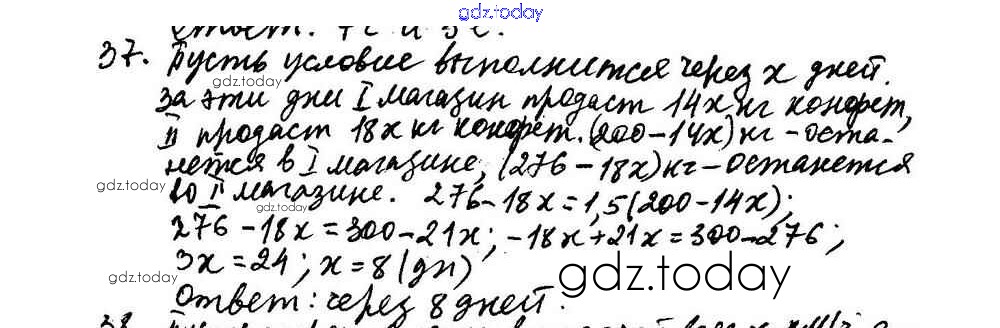 gdz.today
Ответ: 7 с и 3 с.
37. Пусть условие выполнится через x дней.
gdz.today
За эти дни I магазин продаст 14x кг конфет,
II продаст 18x кг конфет. (200-14x) кг - оста-
нется в I магазине, (276-18x) кг - останется
gdz.today
во II магазине. 276-18x=1,5(200-14x);
gdz.today
276-18x=300-21x; -18x+21x=300-276;
3x=24; x=8 (дн)
gdz.today
gdz.today
Ответ: через 8 дней.
38.